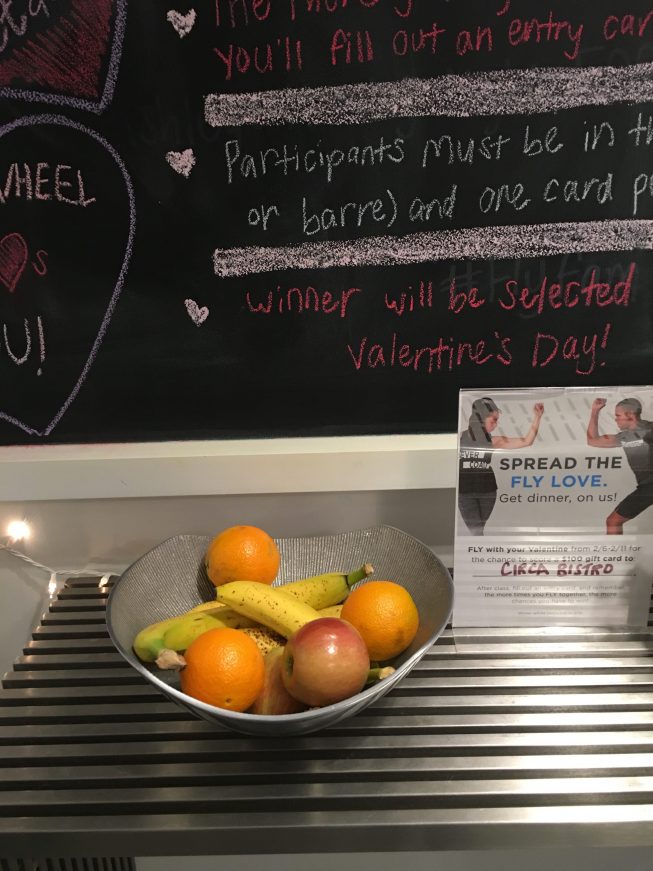 VHEEL
s
U!
you'll fill out an entry car
Participants must be in th
or barre) and one card p
winner will be selected
Valentine's Day!
EVER
COAST
SPREAD THE
FLY LOVE.
Get dinner, on us!
FLY with your Valentine from 2/6-2/11 for
the chance to score a $100 gift card to:
CIRCA BISTRO
After class, fill out an entry card and remember,
the more times you FLY together, the more
chances you have to win!